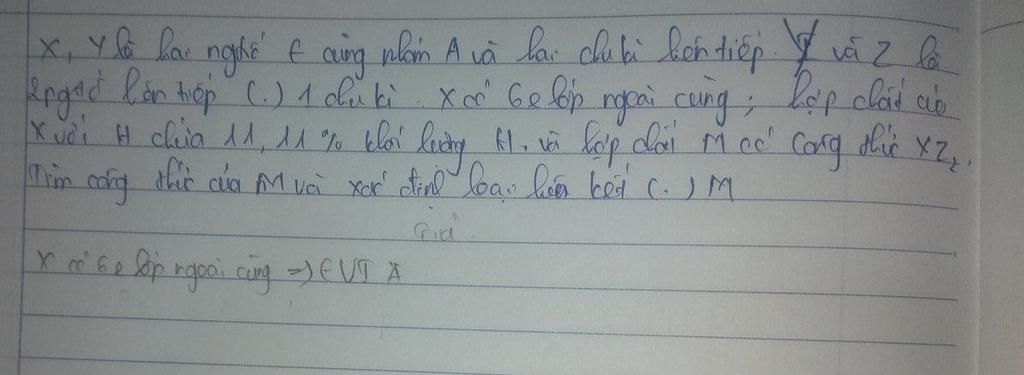 X, Y là hai ngtố ∈ cùng nhóm A và hai chu kì liên tiếp. Y và Z là
2 ngtố liên tiếp (.) 1 chu kì. X có 6e lớp ngoài cùng; hợp chất của
X với H chứa 11,11% khối lượng H. và hợp chất M có công thức XZ₂.
Tìm công thức của M và xác định loại liên kết (.) M
Giải
X có 6e lớp ngoài cùng => ∈ VI A